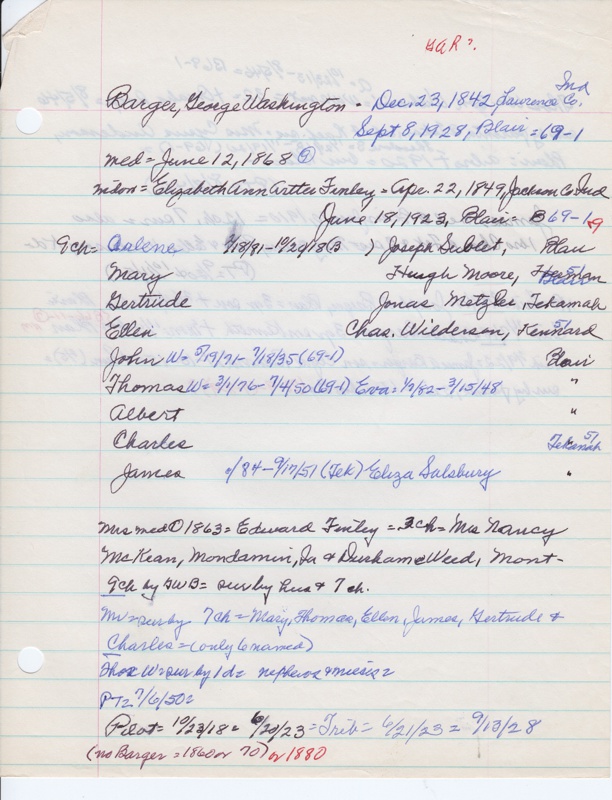 GAR?
Barger, George Washington - Dec. 23, 1842, Lawrence Co, Ind
Sept 8, 1928, Blair = 69-1
med = June 12, 1868
= Elizabeth Ann Artter Finley = Apr. 22, 1849, Jackson Co Ind
June 18, 1923, Blair = B 69-1
9 ch = 9/18/91 - 10/20/18 (B ) Joseph Sublet, Blair
Mary Hugh Moore, Herman
Gertrude Jonas Metzler, Tekamah
Ellen Chas. Wilderson, Kennard 51
John W = 5/19/71 - 7/18/35 (69-1) Blair
Thomas W = 3/1/76 - 7/4/50 (69-1) Eva = 1/2/82 - 3/15/48 "
Albert "
Charles Tekamah 51
James /84 - 9/17/51 (Tek) Eliza Salsbury "
Mrs med ① 1863 = Edward Finley = 3 ch = Mrs Nancy
McKean, Mondamin, Ia & Durham Weed, Mont -
9 ch by GWB = sur by hus & 7 ch.
Mr = sur by 7 ch = Mary, Thomas, Ellen, James, Gertrude &
Charles = (only 6 named)
Thos W = sur by 1 d = nephews & nieces =
PT = 7/6/50 =
Pilot = 10/23/18 = 6/20/23 = Trib = 6/21/23 = 9/13/28
(no Barger = 1860 or 70) or 1880